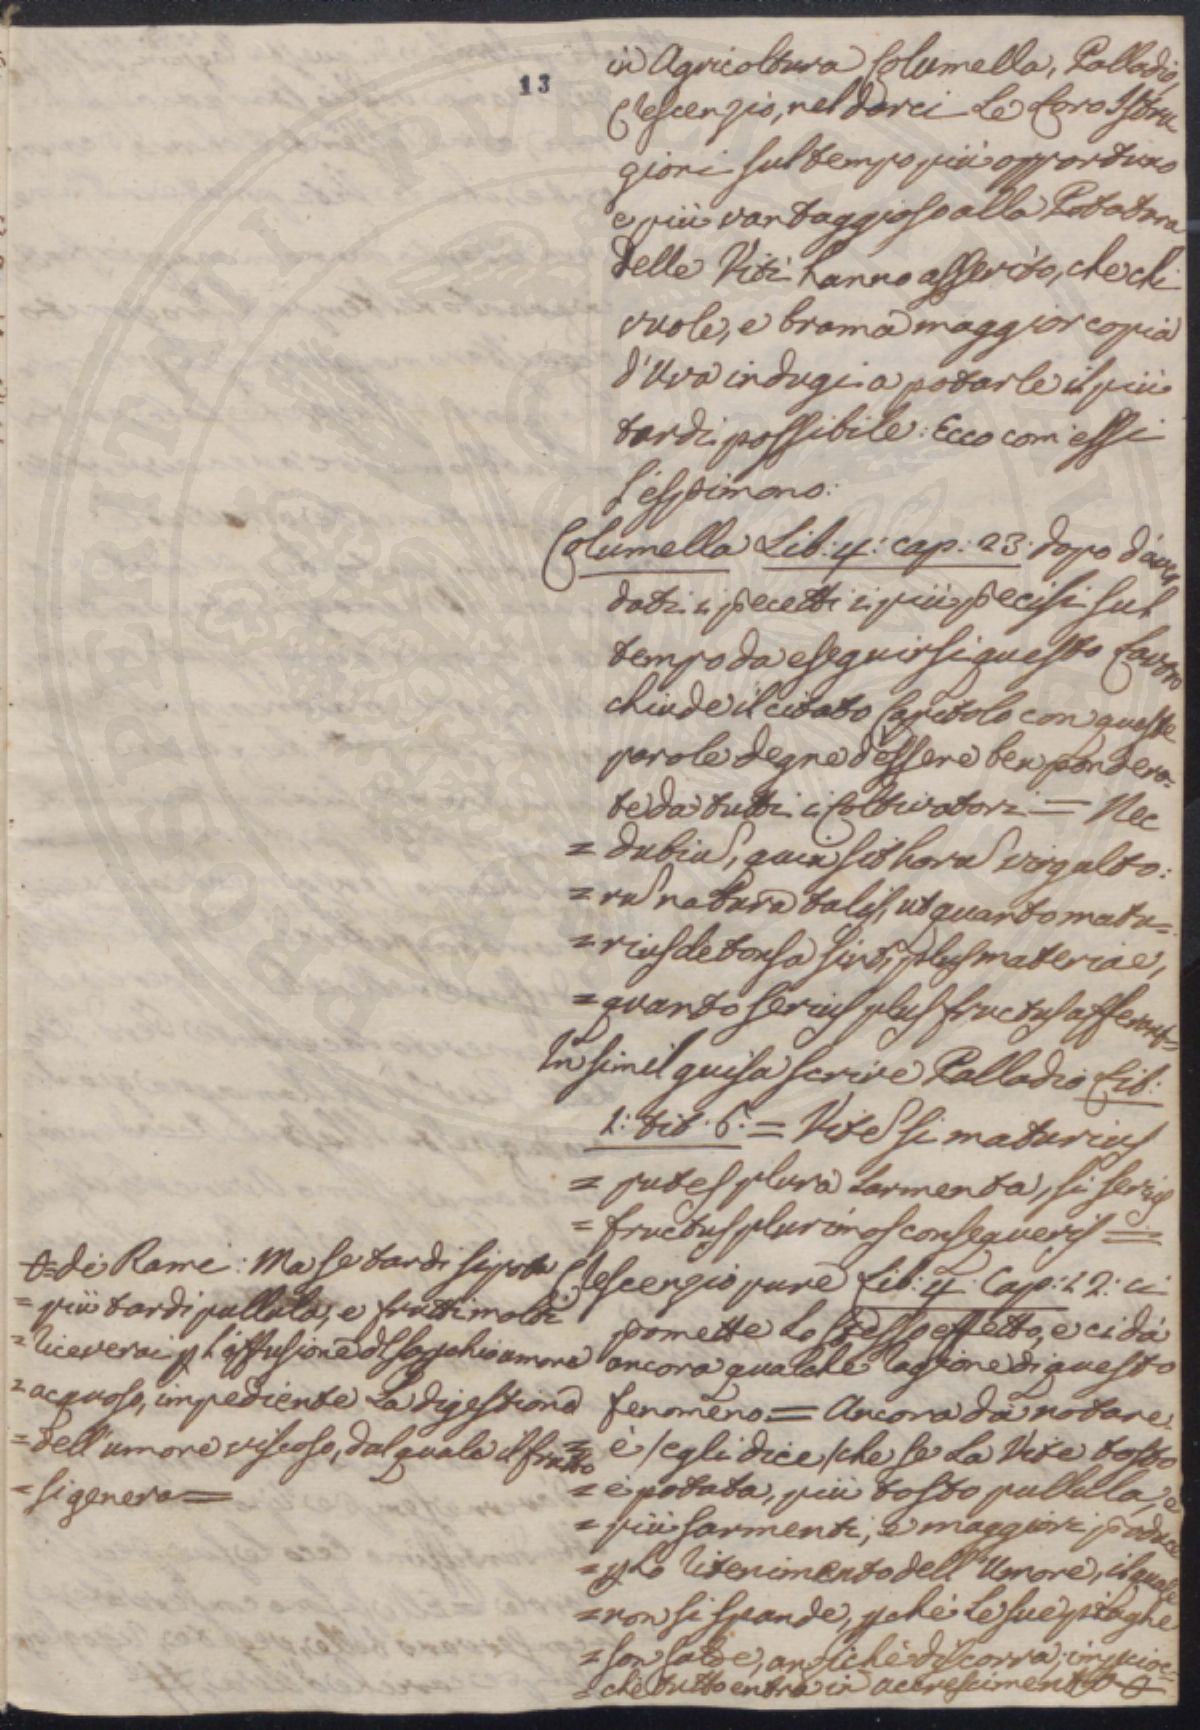 13
in Agricoltura Columella, Palladio,
Crescenzio, nel darci le loro Istru
zioni sul tempo più opportuno
e più vantaggioso alla Potatura
delle Viti hanno asserito, che chi
vuole, e brama maggior copia
d'Uva indugi a potarle il più
tardi possibile: Ecco com'essi
s'esprimono:
Columella Lib: 4: cap: 23: dopo d'aver
dati i precetti i più precisi sul
tempo da eseguirsi questo lavoro
chiude il citato Capitolo con queste
parole degne d'essere ben pondera-
te da tutti i Coltivatori = Nec
= dubiu, quin sit horu virgulto:
= ru natura talis, ut quanto matu=
= rius detonsa sint, plus materiae,
= quanto serius plus fructus afferant=
In simil guisa scrive Palladio Lib:
1: tit: 6: = Vites si maturius
= putes plura sarmenta, si serius
= fructus plurimos consequeris =
Crescenzio pure Lib: 4 Cap: 12: ci
promette lo stesso effetto, e ci dà
ancora qualche ragione di questo
fenomeno = Ancora da notare
= è /egli dice/ che se la Vite tosto
= è potata, più tosto pullula, e
= più sarmenti, e maggiori produce
= p lo ritenimento dell'Umore, il quale
= non si spande, pchè le sue piaghe
= son salde, anzichè discorra; impioc=
= chè tutto entra in accrescimento
= di Rami: Ma se tardi si pota
= più tardi pullula, e frutti molti
= riceverai p l'effusione del soperchio umore
= acquoso, impediente la digestione
= dell'umore viscoso, dal quale il frutto
= si genera =